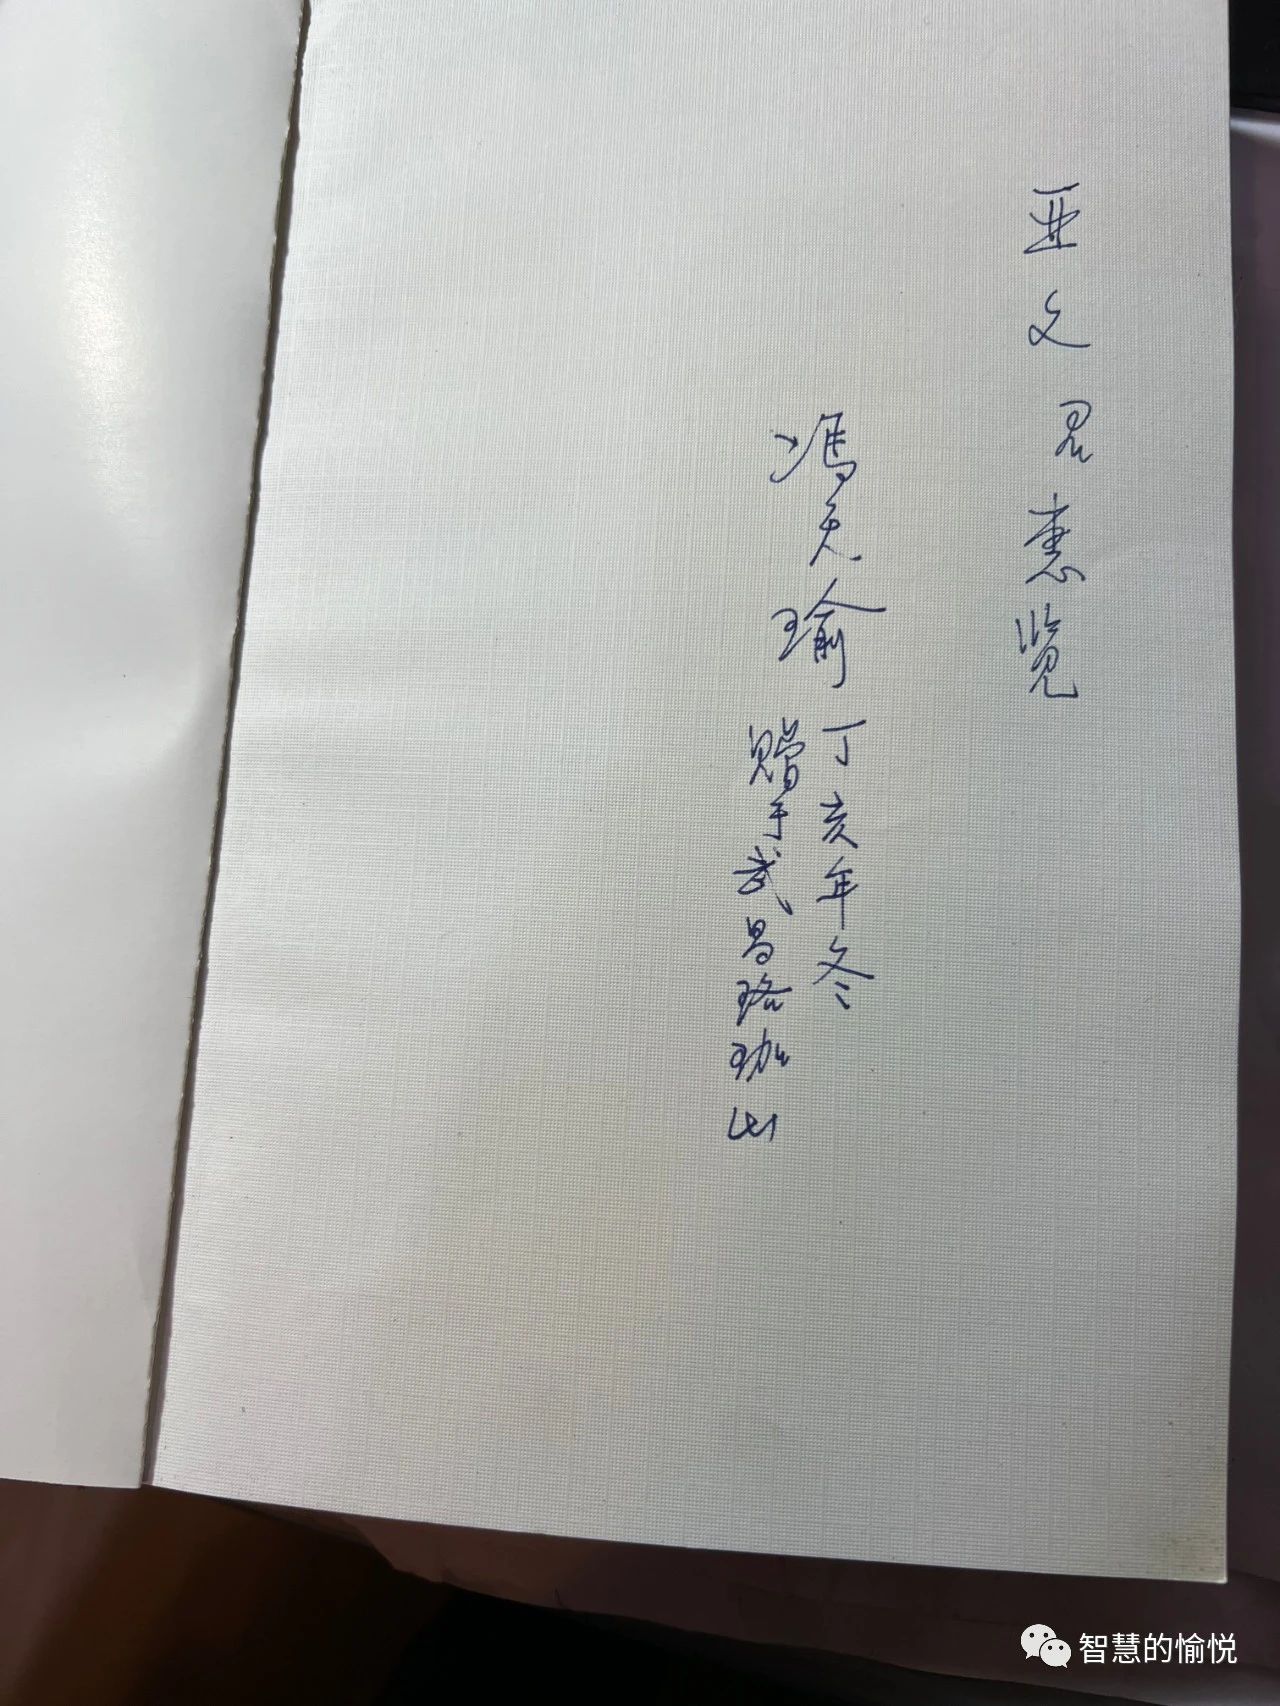 亚文君惠览
冯天瑜
丁亥年冬
赠于武昌珞珈山
智慧的愉悦